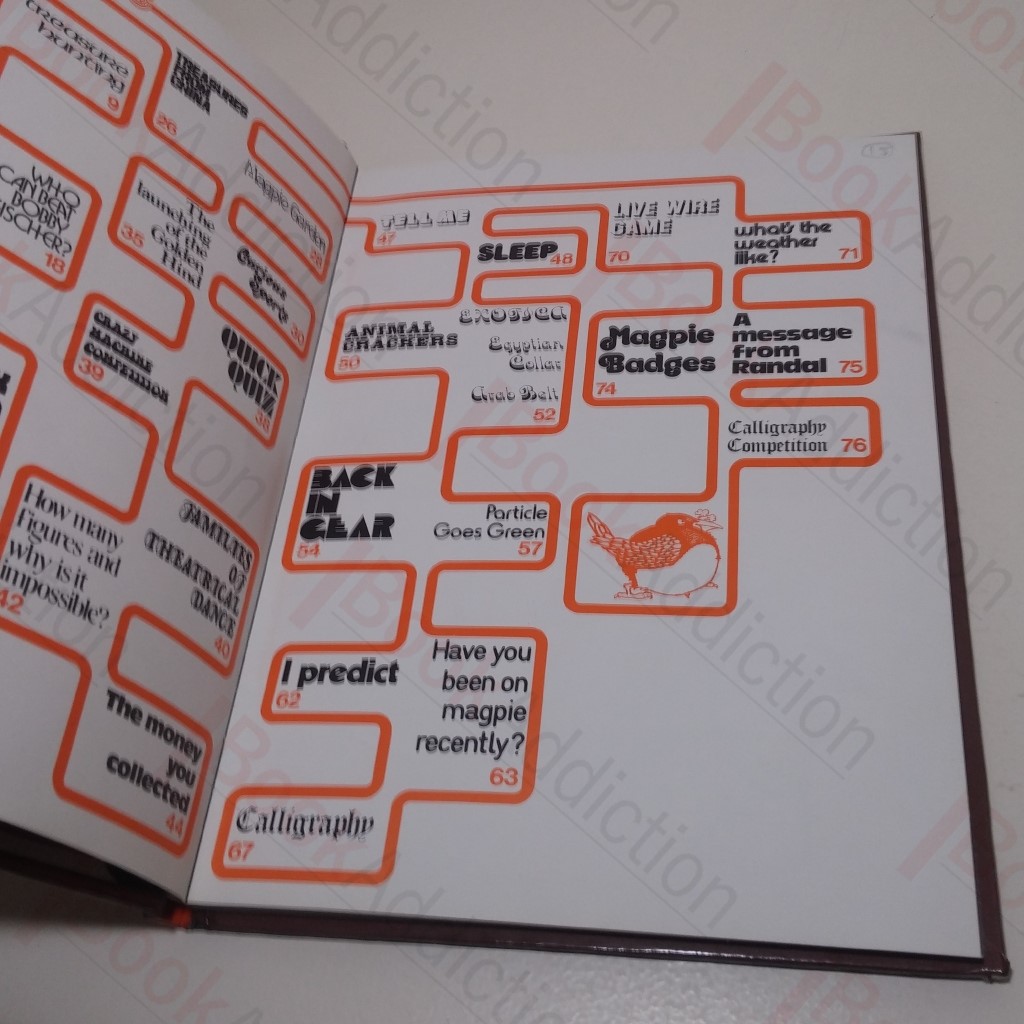 treasure
hunting
9
TREASURES
FROM
CHINA
26
Magpie Garden
28
WHO
CAN BEAT
BOBBY
FISCHER?
18
The
launching
of the
Golden
Hind
35
30
CRAZY
MACHINE
COMPETITION
39
QUICK
QUIZ
38
How many
figures and
why is it
impossible?
42
FAMILIES
OF
THEATRICAL
DANCE
40
The money
you
collected
44
TELL ME
47
SLEEP 48
LIVE WIRE
GAME
70
what's the
weather
like? 71
ANIMAL
CRACKERS
50
EXOTICA
Egyptian
Collar
Arab Belt
52
Magpie
Badges
74
A
message
from
Randal 75
Calligraphy
Competition 76
BACK
IN
GEAR
54
Particle
Goes Green
57
I predict
62
Have you
been on
magpie
recently?
63
Calligraphy
67
BookAddiction